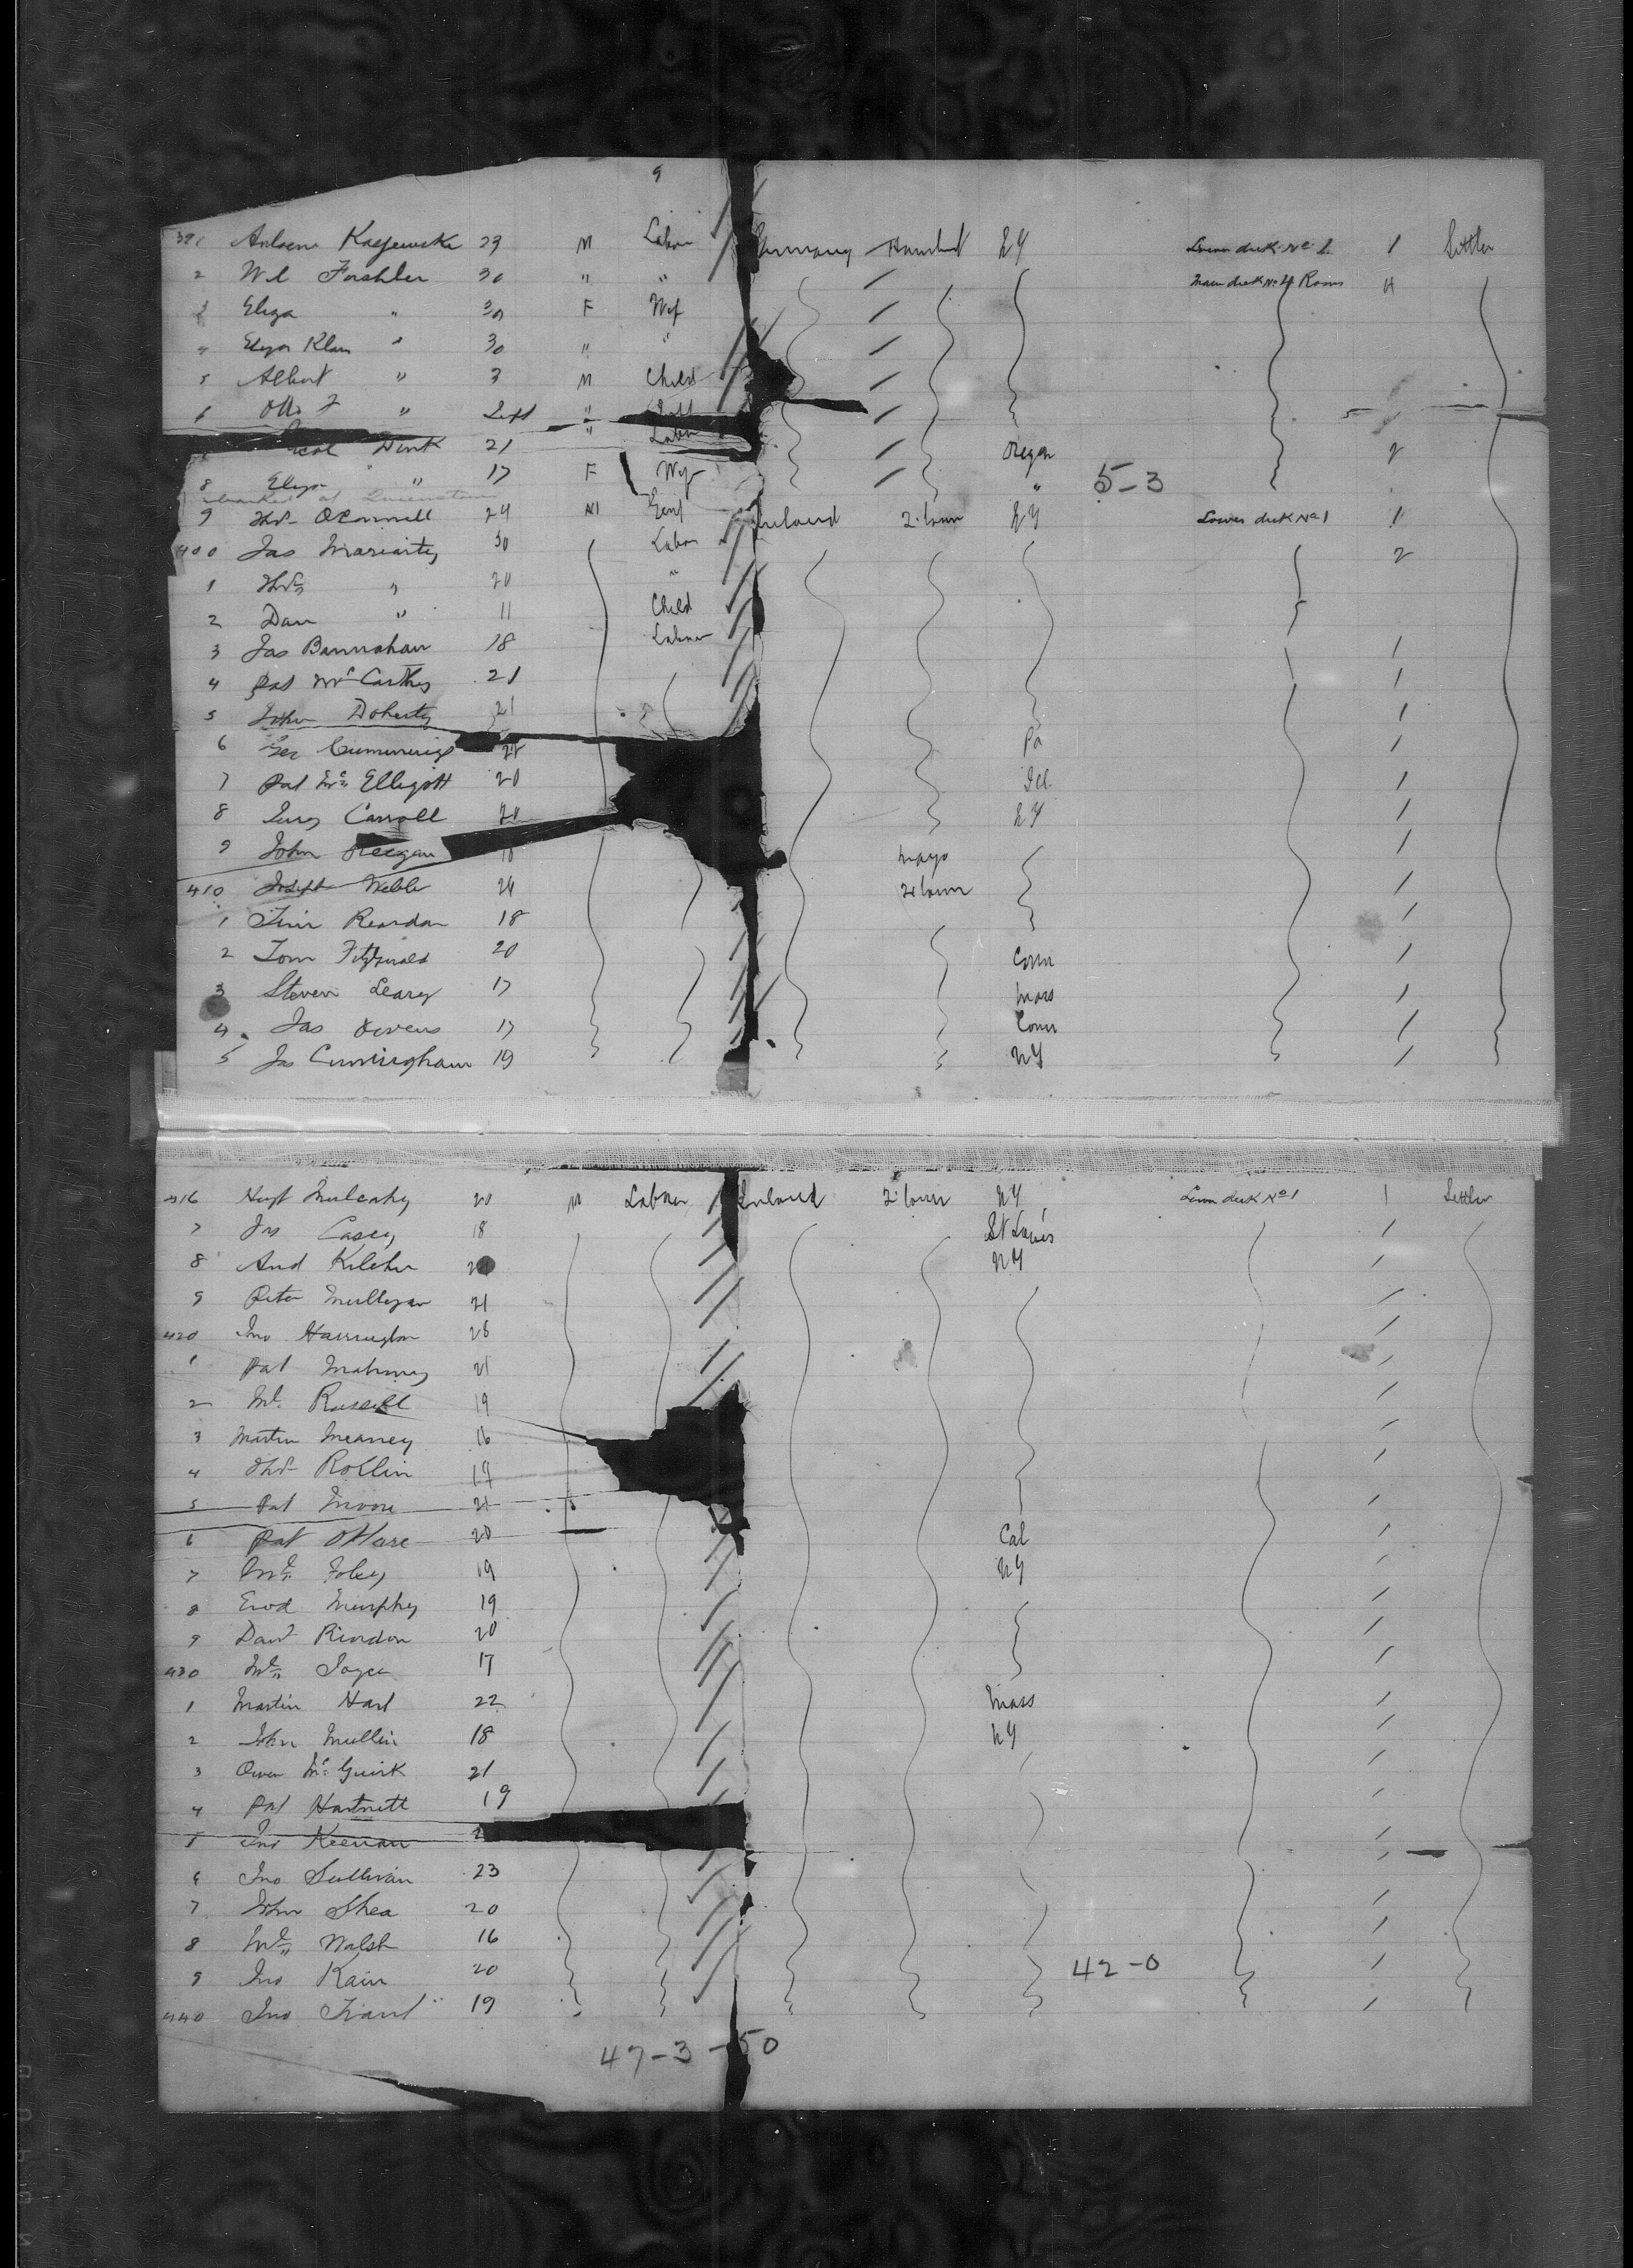 9
391 29 M Labor Germany NY Lower deck No 1 Settler
2 Wl Foshler 30 " " Main deck No 4 Rooms 4
3 Eliza " 30 F Wif
4 Eliza Klara " 30 " "
5 Albert " 3 M Child
6 Otto F " "
Dink 21 " Labor Oregon 2
8 Eliza " 17 F Wif " 5-3
9 Thos O'Connell 24 M Ireland Q. town NY Lower deck No 1 1
400 Jas Moriarty 30 Labor 2
1 Thos " 20 "
2 Dan " 11 Child
3 Jas 18 Laborer 1
4 Pat McCarthy 21 1
5 John Doherty 21 1
6 Cummings 21 Pa 1
7 Pat McElligott 20 Ill. 1
8 Carroll 20 NY 1
9 John 18 Mayo 1
410 Joseph Webb 24 Q. town 1
1 Tim Reardon 18 1
2 Tom Fitzgerald 20 Conn 1
3 Steven Leary 17 Mass 1
4 Jas Owens 17 Conn 1
5 Jas Cunningham 19 NY 1
416 Mulcahy 20 M Laborer Ireland Q. town NY Lower deck No 1 1 Settler
7 Jas Casey 18 St Louis 1
8 And Kelcher NY 1
9 Peter Mulligan 21 1
420 Jno Harrington 28 1
1 Pat Mahoney 21 1
2 Ml. Russell 19 1
3 Martin Meaney 16 1
4 Thos Rollin 19 1
5 Pat Moore 21 1
6 Pat O'Hare 20 Cal 1
7 Ml. Foley 19 NY 1
8 Murphy 19 1
9 Danl Riordon 20 1
430 Ml. Joyce 17 1
1 Martin Hart 22 Mass 1
2 John Mullin 18 NY 1
3 Owen McGuirk 21 1
4 Pat Hartnett 19 1
5 Jno Keenan 1
6 Jno Sullivan 23 1
7 John Shea 20 1
8 Ml. Walsh 16 1
9 Jno Kain 20 42-0 1
440 Jno Trant 19 1
47-3-50